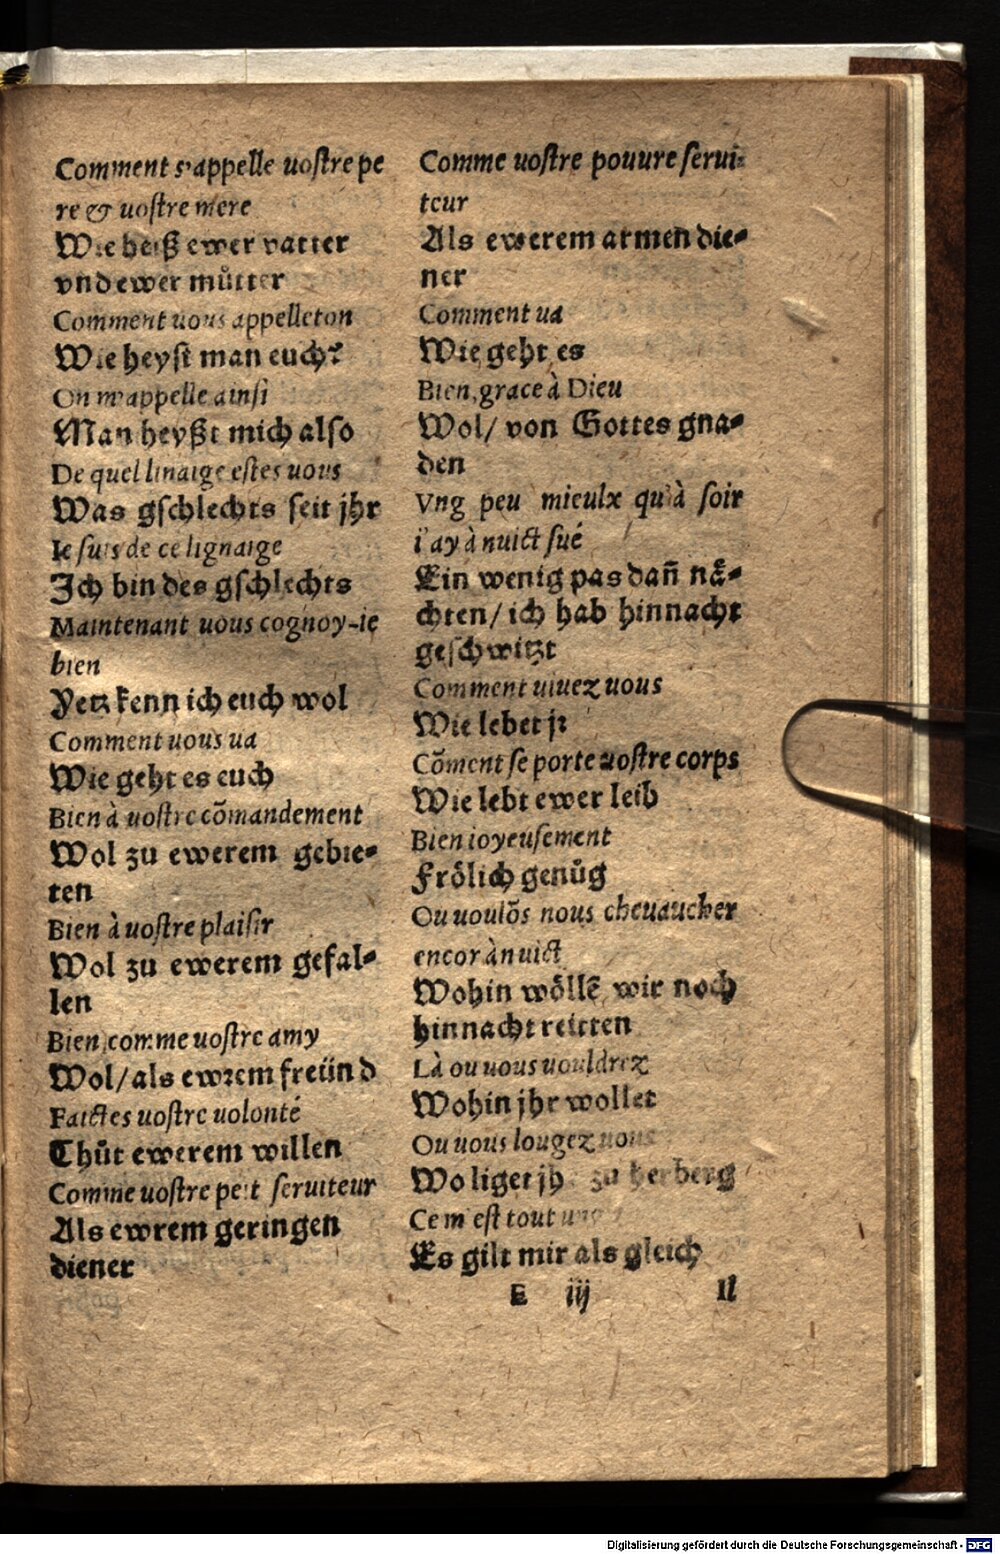 Comment s'appelle uoſtre pe
re & uoſtre mere
Wie heiß ewer vatter
vnd ewer muͤtter
Comment uous appelleton
Wie heyſt man euch?
On m'appelle ainſi
Man heyßt mich alſo
De quel linaige eſtes uous
Was gſchlechts ſeit jhr
Ie ſuis de ce lignaige
Ich bin des gſchlechts
Maintenant uous cognoy-ie
bien
Yetz kenn ich euch wol
Comment uous ua
Wie geht es euch
Bien à uoſtre cõmandement
Wol zu ewerem gebie⸗
ten
Bien à uoſtre plaiſir
Wol zu ewerem gefal⸗
len
Bien, comme uoſtre amy
Wol/ als ewrem freünd
Faictes uoſtre uolonté
Thuͦt ewerem willen
Comme uoſtre petit ſeruiteur
Als ewrem geringen
diener
Comme uoſtre pouure ſerui⸗
teur
Als ewerem armen die⸗
ner
Comment ua
Wie geht es
Bien, grace à Dieu
Wol/ von Gottes gna⸗
den
Vng peu mieulx qu'à ſoir
i'ay à nuict ſué
Ein wenig pas dañ naͤ⸗
chten/ ich hab hinnacht
geſchwitzt
Comment uiuez uous
Wie lebet jr
Cõment ſe porte uoſtre corps
Wie lebt ewer leib
Bien ioyeuſement
Froͤlich genuͦg
Ou uoulõs nous cheuaucher
encor à nuict
Wohin woͤllẽ wir noch
hinnacht reitten
Là ou uous uouldrez
Wohin jhr wollet
Ou uous lougez uous
Wo liget jh zu herberg
Ce m'eſt tout
Es gilt mir als gleich
E iij Il
Digitalisierung gefördert durch die Deutsche Forschungsgemeinschaft - DFG